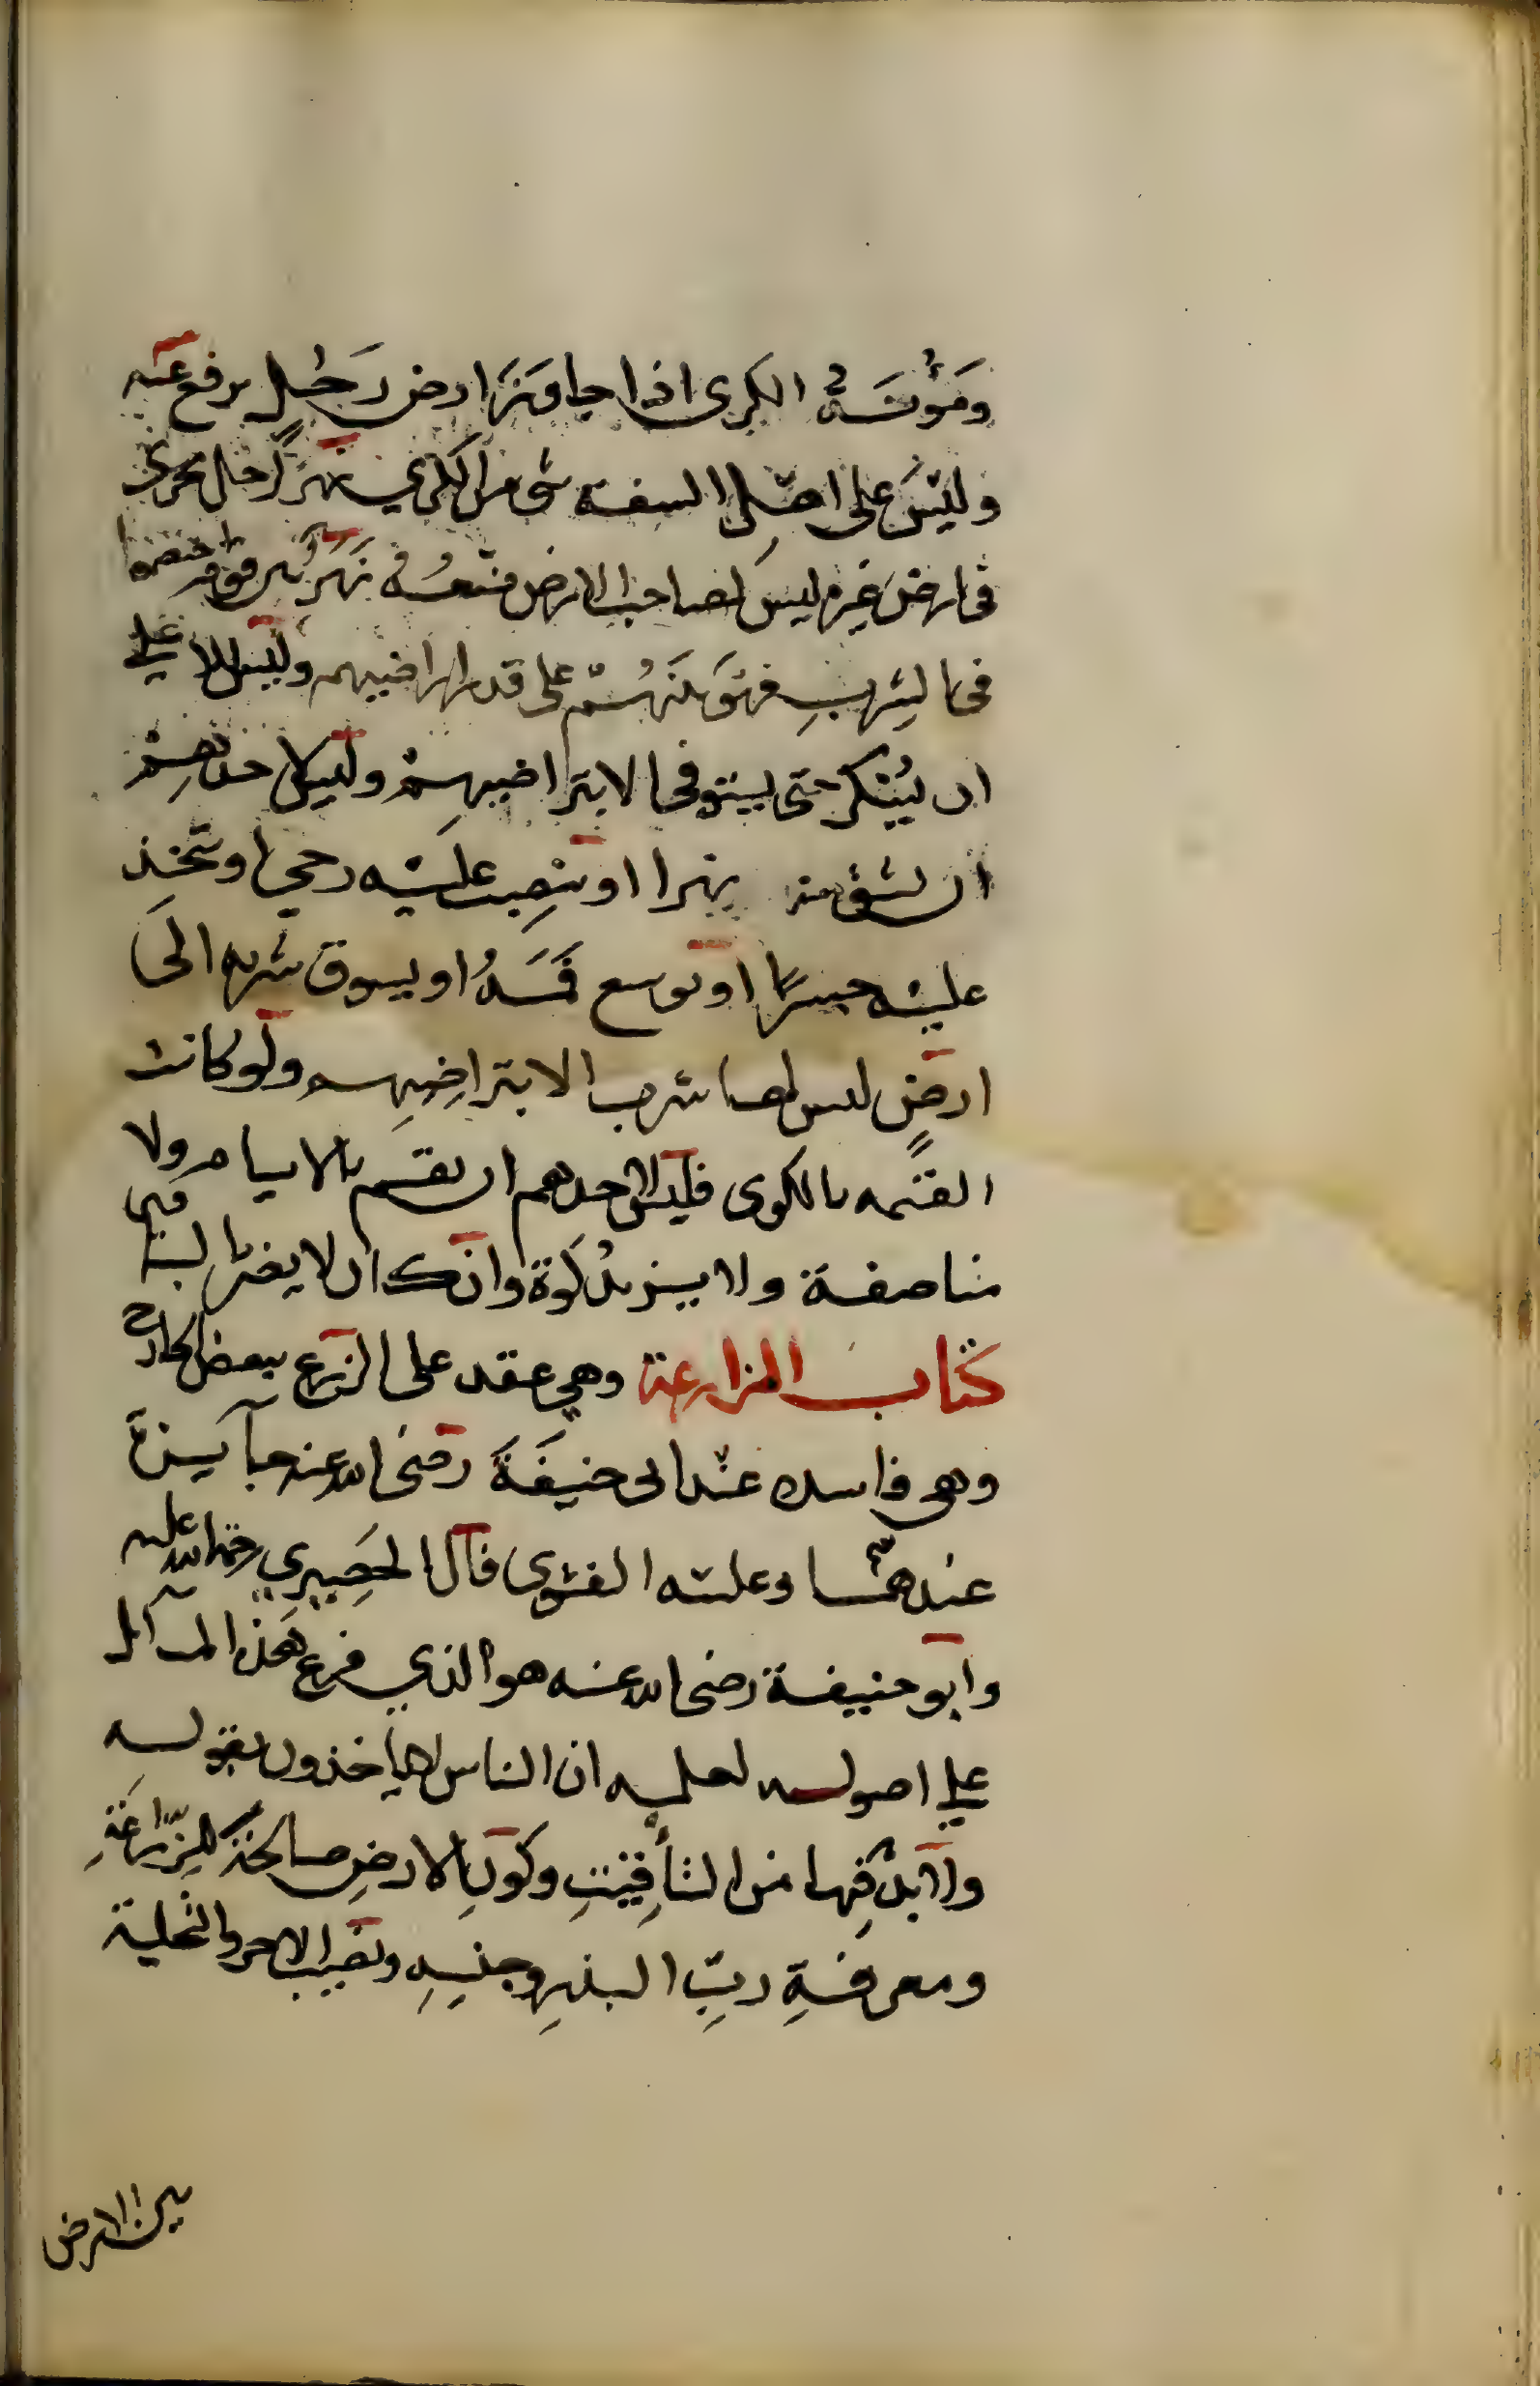 ومَؤُنَةُ الكرى اذا جاوَزَ ارض رَجُلٍ رفع عنه
وليسَ على اهلِ الشفة شى من الكري نهرٌ لرجل يجرى
فى ارض غيره ليس لصاحب الارض منعُه نهرٌ بين قوم اختصموا
فى الشِربِ فهوَ بَينهُم على قدر اراضيهم وليس للاعلى
ان يُسَكِّرَ حتى يستوفى الا بتراضيهِم وليس لاحدهِم
ان يشق منه نهرا او ينصِبَ عليه رحى او يتخذ
عليه جسرًا او يوسع فمَهُ او يسوق شربه الى
ارضٍ ليس لها شرب الا بتراضِيهم ولو كانت
القسمه بالكوى فليس لاحدهم ان يقسم بالايام ولا
مناصفة ولا يزيدُ كوّة وان كان لا يضر الباقين
كتاب المزارعة وهى عقد على الزرع ببعض الخارج
وهى فاسده عند ابى حنيفَةَ رضى الله عنه جآيزة
عندهُما وعليه الفتوى قال الحَصِيري رحمة الله عليه
وابو حنيفة رضى الله عنه هو الذي فرع هذه المسآئل
على اصوله لعلمه ان الناس لا ياخذون بقوله
ولا بدّ فيها من التأقيتِ وكونِ الارضِ صالحة للزّراعَةِ
ومعرفةِ ربِّ البذرِ وجنسِهِ ونصيب الاخر والتخلية
بين الارض